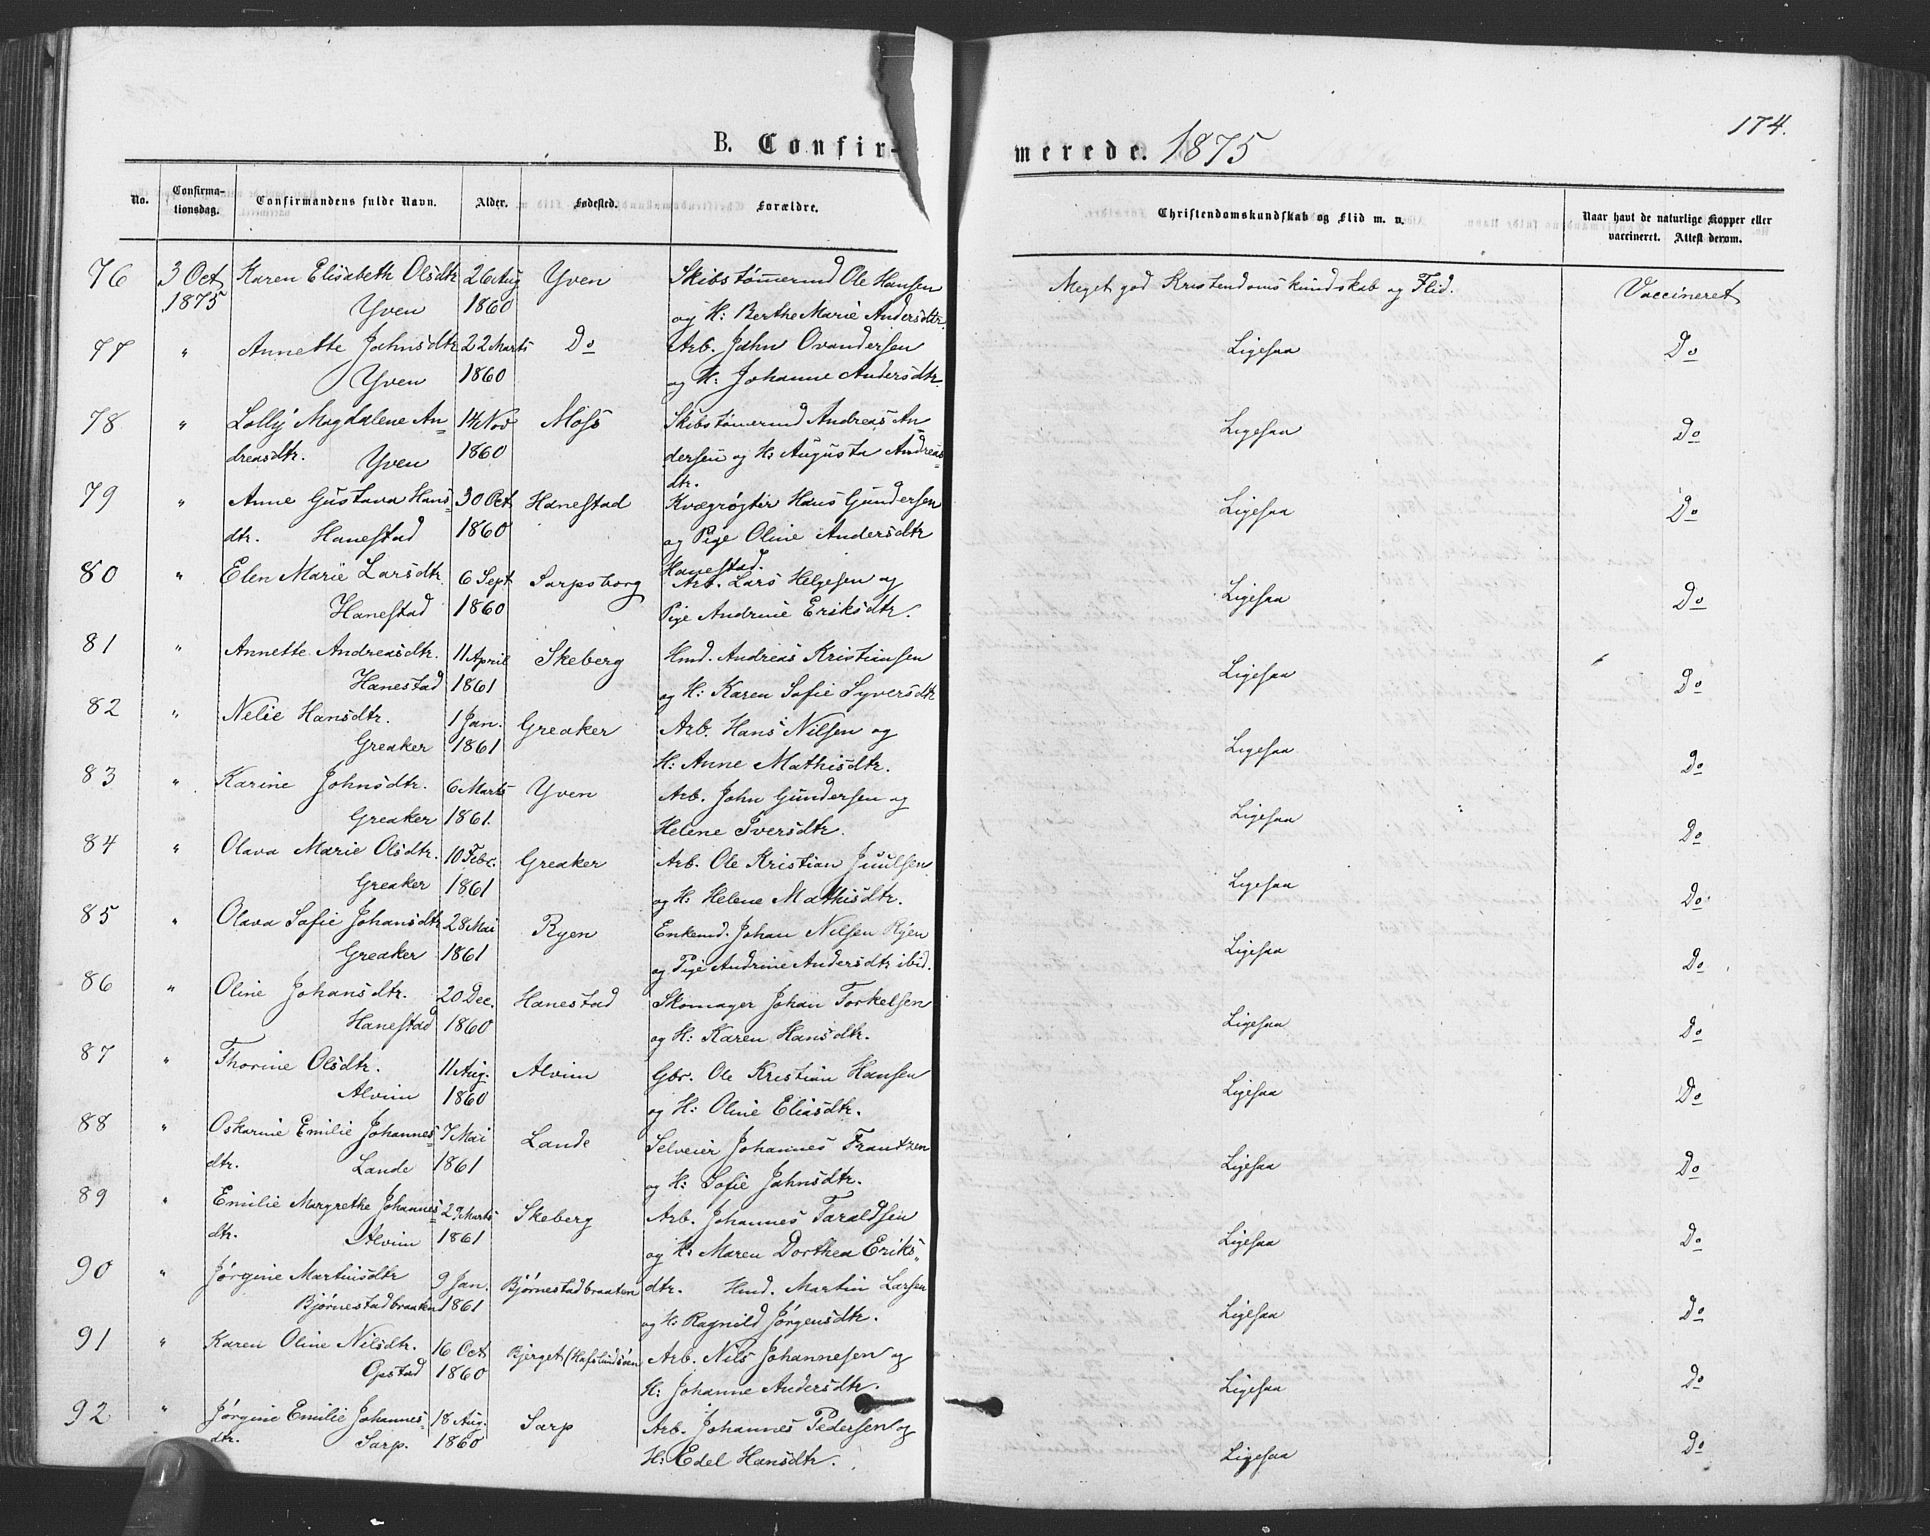 174.
B. Confir- merede. 1875
No. Confirmationsdag. Confirmandens fulde Navn. Alder. Fødested. Forældre. Christendomskundskab og Flid m. v. Naar havt de naturlige Kopper eller vaccineret. Attest derom.
76 3 Oct Karen Elisabeth Olsdtr 26 Aug Yven Skibstømermd Ole Hansen Meget god Kristendomskundskab og Flid. Vaccineret
1875 Yven 1860 og H: Berthe Marie Andersdtr.
77 " Annette Johnsdtr 22 Marts Do Arb. John Ovandersen Ligesaa Do
Yven 1860 og H: Johanne Andersdtr.
78 " Lolly Magdalene An= 14 Nov Moss Skibstømermd Andreas An Ligesaa Do
dreasdtr. Yven 1860 dersen og H: Augusta Andreas=
dtr.
79 " Anne Gustava Hans 30 Oct Hanestad Kvægrøgter Hans Gundersen Ligesaa Do
dtr. Hanestad 1860 og Pige Oline Andersdtr
Hanestad.
80 " Elen Marie Larsdtr. 6 Sept Sarpsborg Arb. Lars Helgesen og Ligesaa Do
Hanestad 1860 Pige Andrine Eriksdtr.
81 " Annette Andreasdtr. 11 April Skeberg Hmd. Andreas Kristiansen Ligesaa Do
Hanestad 1861 og H: Karen Sofie Syversdtr
82 " Nelie Hansdtr. 1 Jan. Greaker Arb. Hans Nilsen og Ligesaa Do
Greaker 1861 H: Anne Mathisdtr.
83 " Karine Johnsdtr. 6 Marts Yven Arb. John Gundersen og Ligesaa Do
Greaker 1861. Helene Iversdtr.
84 " Olava Marie Olsdtr. 10 Febr. Greaker Arb. Ole Kristian Juulsen Ligesaa Do
Greaker 1861 og H: Helene Mathisdtr.
85 " Olava Sofie Johansdtr 28 Mai Ryen Enkemd. Johan Nilsen Ryen Ligesaa Do
Greaker 1861 og Pige Andrine Andersdtr ibid.
86 " Oline Johansdtr. 20 Dec. Hanestad Skomager Johan Torkelsen Ligesaa Do
Hanestad 1860 og H: Karen Hansdtr.
87 " Thorine Olsdtr. 11 Aug. Alvim Gbr. Ole Kristian Hansen Ligesaa Do
Alvim 1860 og H: Oline Eliasdtr.
88 " Oskarine Emilie Johannes= 7 Mai Lande Selveier Johannes Frantzen Ligesaa Do
dtr. Lande 1861 og H: Sofie Johnsdtr.
89 " Emilie Margrethe Johannes= 29 Marts Skeberg Arb. Johannes Taraldsen Ligesaa Do
dtr. Alvim 1861 og H: Maren Dorthea Eriks=
90 " Jørgine Martinsdtr 9 Jan. Bjørnestadbraaten dtr. Hmd. Martin Larsen Ligesaa Do
Bjørnestadbraaten 1861 og H: Ragnild Jørgensdtr.
91 " Karen Oline Nilsdtr. 16 Oct Bjerget (Hafslundsøen Arb. Nils Johannesen og Ligesaa Do
Opstad 1860 H: Johanne Andersdtr.
92 " Jørgine Emilie Johannes= 18 Aug. Sarp Arb. Johannes Pedersen og Ligesaa Do
dtr. Sarp. 1860 H: Edel Hansdtr.